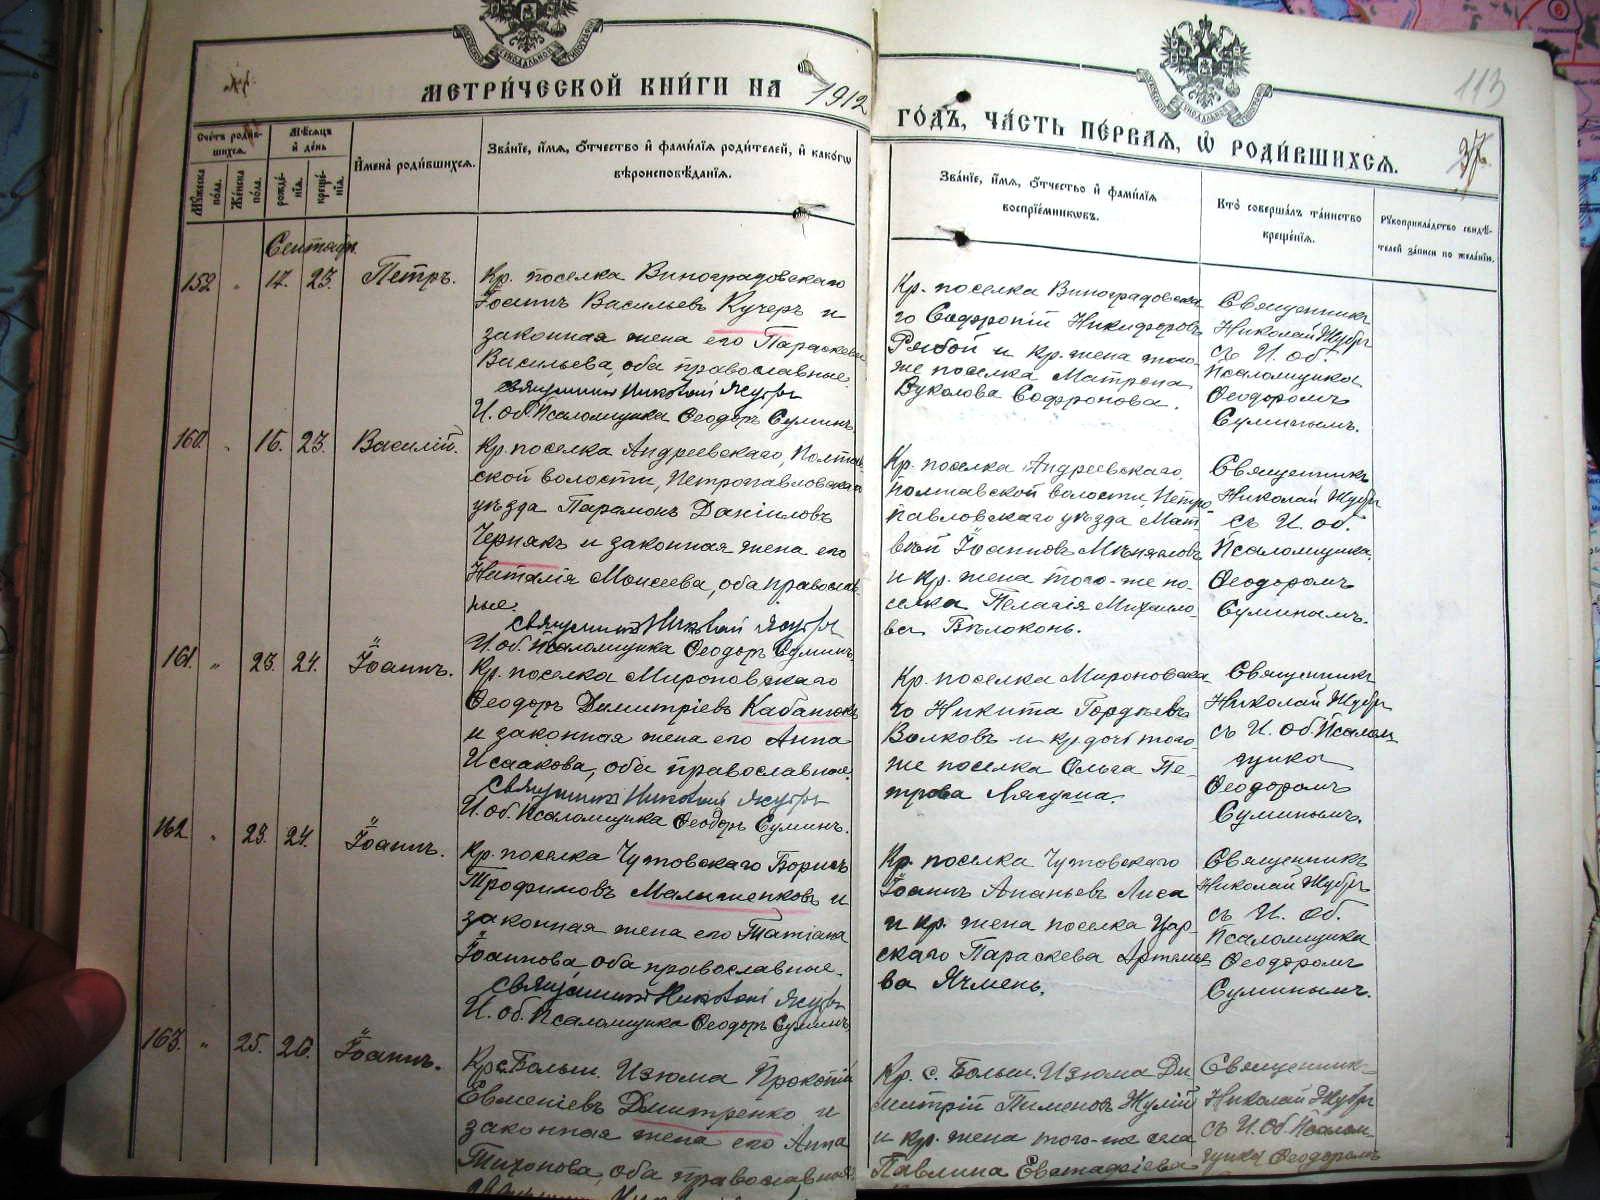 МЕТРИ́ЧЕСКОЙ КНИ́ГИ НА 1912
ГО́ДЪ, ЧА́СТЬ ПЕ́РВАЯ, Ѡ РОДИ́ВШИХСЯ.
113
37.
Сче́тъ роди́в-
шихся.
Мѣ́сяцъ
и де́нь
Му́жеска
по́ла.
Же́нска
по́ла.
рожде́-
нїя.
креще́-
нїя.
Имена̀ роди́вшихся.
Зва́нїе, и́мя, о́тчество и фами́лїя роди́телей, и како́гѡ
вѣроисповѣ́данїя.
Зва́нїе, и́мя, о́тчество и фами́лїя
воспрїе́мникѡвъ.
Кто̀ соверша́лъ та́инство
креще́нїя.
Рукоприкла́дство свидѣ́-
телей за́писи по жела́нїю.
Сентябр.
152 " 17. 23. Петръ.
Кр. поселка Виноградовскаго
Іоаннъ Васильевъ Кучеръ и
законная жена его Параскева
Васильева, оба православные.
Священникъ Николай Жубръ
И. об. Псаломщика Ѳеодоръ Суминъ
Кр. поселка Виноградовска
го Софроній Никифоровъ
Рябой и кр. жена того-
же поселка Матрона
Вуколова Софронова.
Священникъ
Николай Жубръ
съ И. об.
Псаломщика
Ѳеодоромъ
Суминымъ.
160. " 16. 23. Василій.
Кр. поселка Андреевскаго, Полтав-
ской волости, Петропавловскаго
уѣзда Парамонъ Даніиловъ
Чернякъ и законная жена его
Наталія Моисеева, оба православ-
ные.
Священникъ Николай Жубръ
И. об. Псаломщика Ѳеодоръ Суминъ
Кр. поселка Андреевскаго,
Полтавской волости, Петро-
павловскаго уѣзда Мат-
вѣй Іоанновъ Мѣняловъ
и кр. жена того-же по-
селка Пелагія Михайло-
ва Бѣлоконь.
Священникъ
Николай Жубръ
съ И. об.
Псаломщика
Ѳеодоромъ
Суминымъ.
161. " 23. 24. Іоаннъ.
Кр. поселка Мироновскаго
Ѳеодоръ Димитріевъ Кабанюкъ
и законная жена его Анна
Исаакова, оба православные.
Священникъ Николай Жубръ
И. об. Псаломщика Ѳеодоръ Суминъ.
Кр. поселка Мироновска
го Никита Гордѣевъ
Волковъ и кр. дочь того-
же поселка Ольга Пе-
трова Лягуша.
Священникъ
Николай Жубръ
съ И. об. Псалом
щика
Ѳеодоромъ
Суминымъ.
162 " 23. 24. Іоаннъ.
Кр. поселка Чутовскаго Борисъ
Трофимовъ Малышенковъ и
законная жена его Татіана
Іоаннова, оба православные.
Священникъ Николай Жубръ
И. об. Псаломщика Ѳеодоръ Суминъ
Кр. поселка Чутовскаго
Іоаннъ Ананьевъ Лиса
и кр. жена поселка Цар-
скаго Параскева Артемье-
ва Ячмень.
Священникъ
Николай Жубръ
съ И. об.
Псаломщика
Ѳеодоромъ
Суминымъ.
163. " 25. 26. Іоаннъ.
Кр. с. Больш. Изюма Прокопій
Евменіевъ Дмитренко и
законная жена его Анна
Тихонова, оба православные.
Кр. с. Больш. Изюма Ди-
митрій Пименовъ Жулій
и кр. жена того-же села
Павлина Евстафіева
Священникъ
Николай Жубръ
съ И. об. Псалом-
щика Ѳеодоромъ